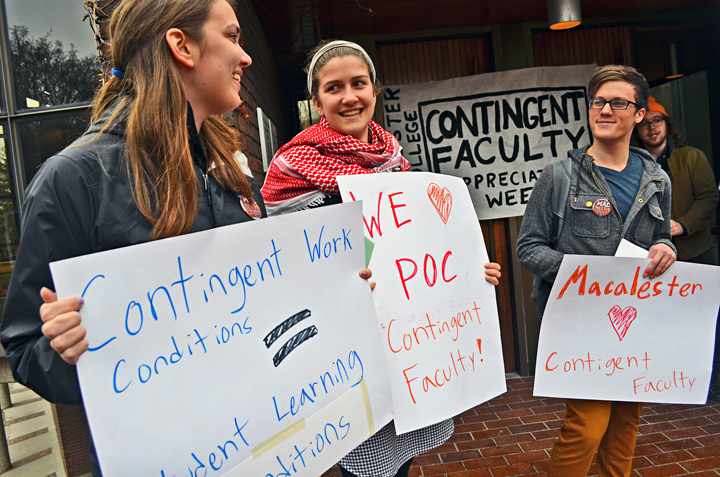 STER
LEGE
CONTINGENT
FACULTY
PPRECIAT
WEE
Contingent Work
Conditions
=
tudent Learning
onditions
WE ♥
POC
Contingent
Faculty!
Macalester
♥
Contigent
Faculty
MAC